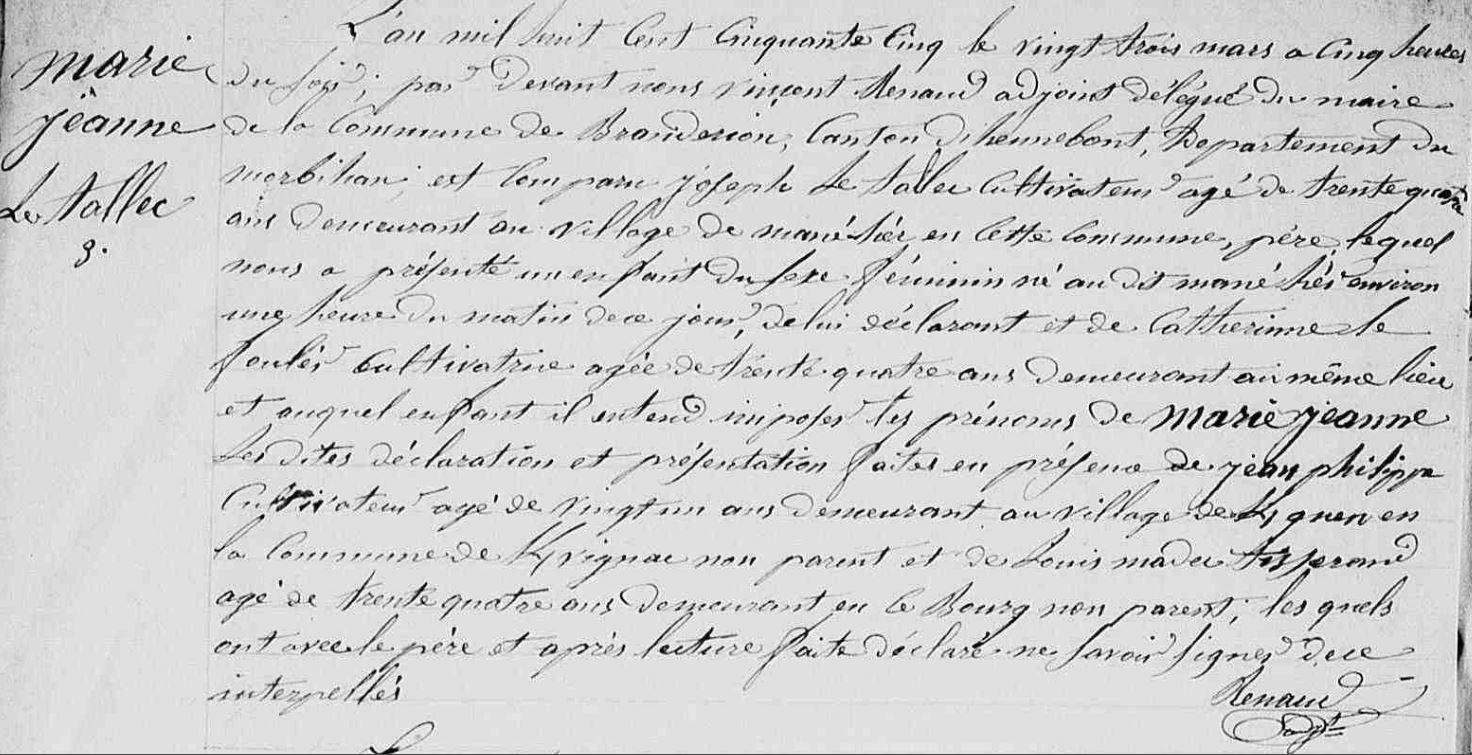 marie
jeanne
Le tallec
8.
L'an mil huit Cent Cinquante Cinq le vingt trois mars a Cinq heures
du soir; par devant nous vincent Renaud adjoint délégué du maire
de la Commune de Branderion, Canton d'hennebont, Departement du
morbihan; est Comparu joseph Le tallec Cultivateur agé de trente quatre
ans demeurant au village de mané hér en Cette Commune, père, lequel
nous a présenté un enfant du sexe féminin né au dit mané hér environ
une heure du matin de ce jour, de lui déclarant et de Catherinne le
foulér Cultivatrice agée de trente quatre ans demeurant au même lieu
et auquel enfant il entend imposer les prénoms de marie jeanne
Les dites déclaration et présentation faites en présence de jean philippe
Cultivateur agé de vingt un ans demeurant au village de en
la Commune de Kvignac non parent et de Louis madec tisserand
agé de trente quatre ans demeurant en ce Bourg non parent; les quels
ont avec le père et après lecture faite déclaré ne savoir signer de ce
interpellés
Renaud
adjt